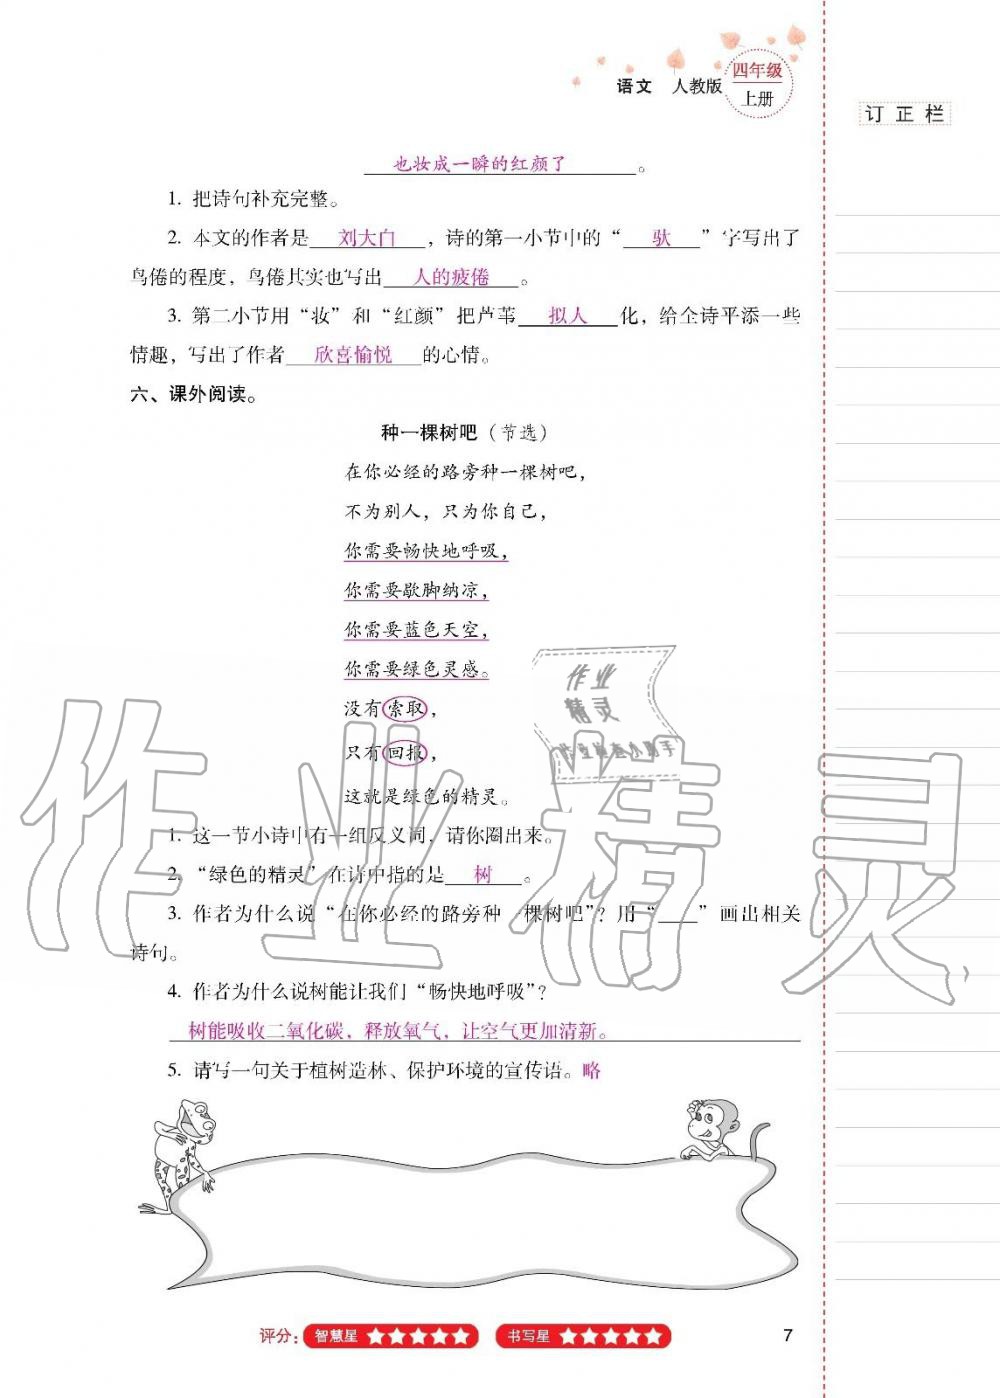 语文 人教版 四年级
上册
订正栏
也妆成一瞬的红颜了。
1. 把诗句补充完整。
2. 本文的作者是 刘大白 ，诗的第一小节中的“ 驮 ”字写出了
鸟倦的程度，鸟倦其实也写出 人的疲倦 。
3. 第二小节用“妆”和“红颜”把芦苇 拟人 化，给全诗平添一些
情趣，写出了作者 欣喜愉悦 的心情。
六、课外阅读。
种一棵树吧（节选）
在你必经的路旁种一棵树吧，
不为别人，只为你自己，
你需要畅快地呼吸，
你需要歇脚纳凉，
你需要蓝色天空，
你需要绿色灵感。
没有索取，
只有回报，
这就是绿色的精灵。
1. 这一节小诗中有一组反义词，请你圈出来。
2. “绿色的精灵”在诗中指的是 树 。
3. 作者为什么说“在你必经的路旁种一棵树吧”？用“____”画出相关
诗句。
4. 作者为什么说树能让我们“畅快地呼吸”？
树能吸收二氧化碳，释放氧气，让空气更加清新。
5. 请写一句关于植树造林、保护环境的宣传语。略
评分： 智慧星 ★★★★★ 书写星 ★★★★★
7
作业精灵
作业
精灵